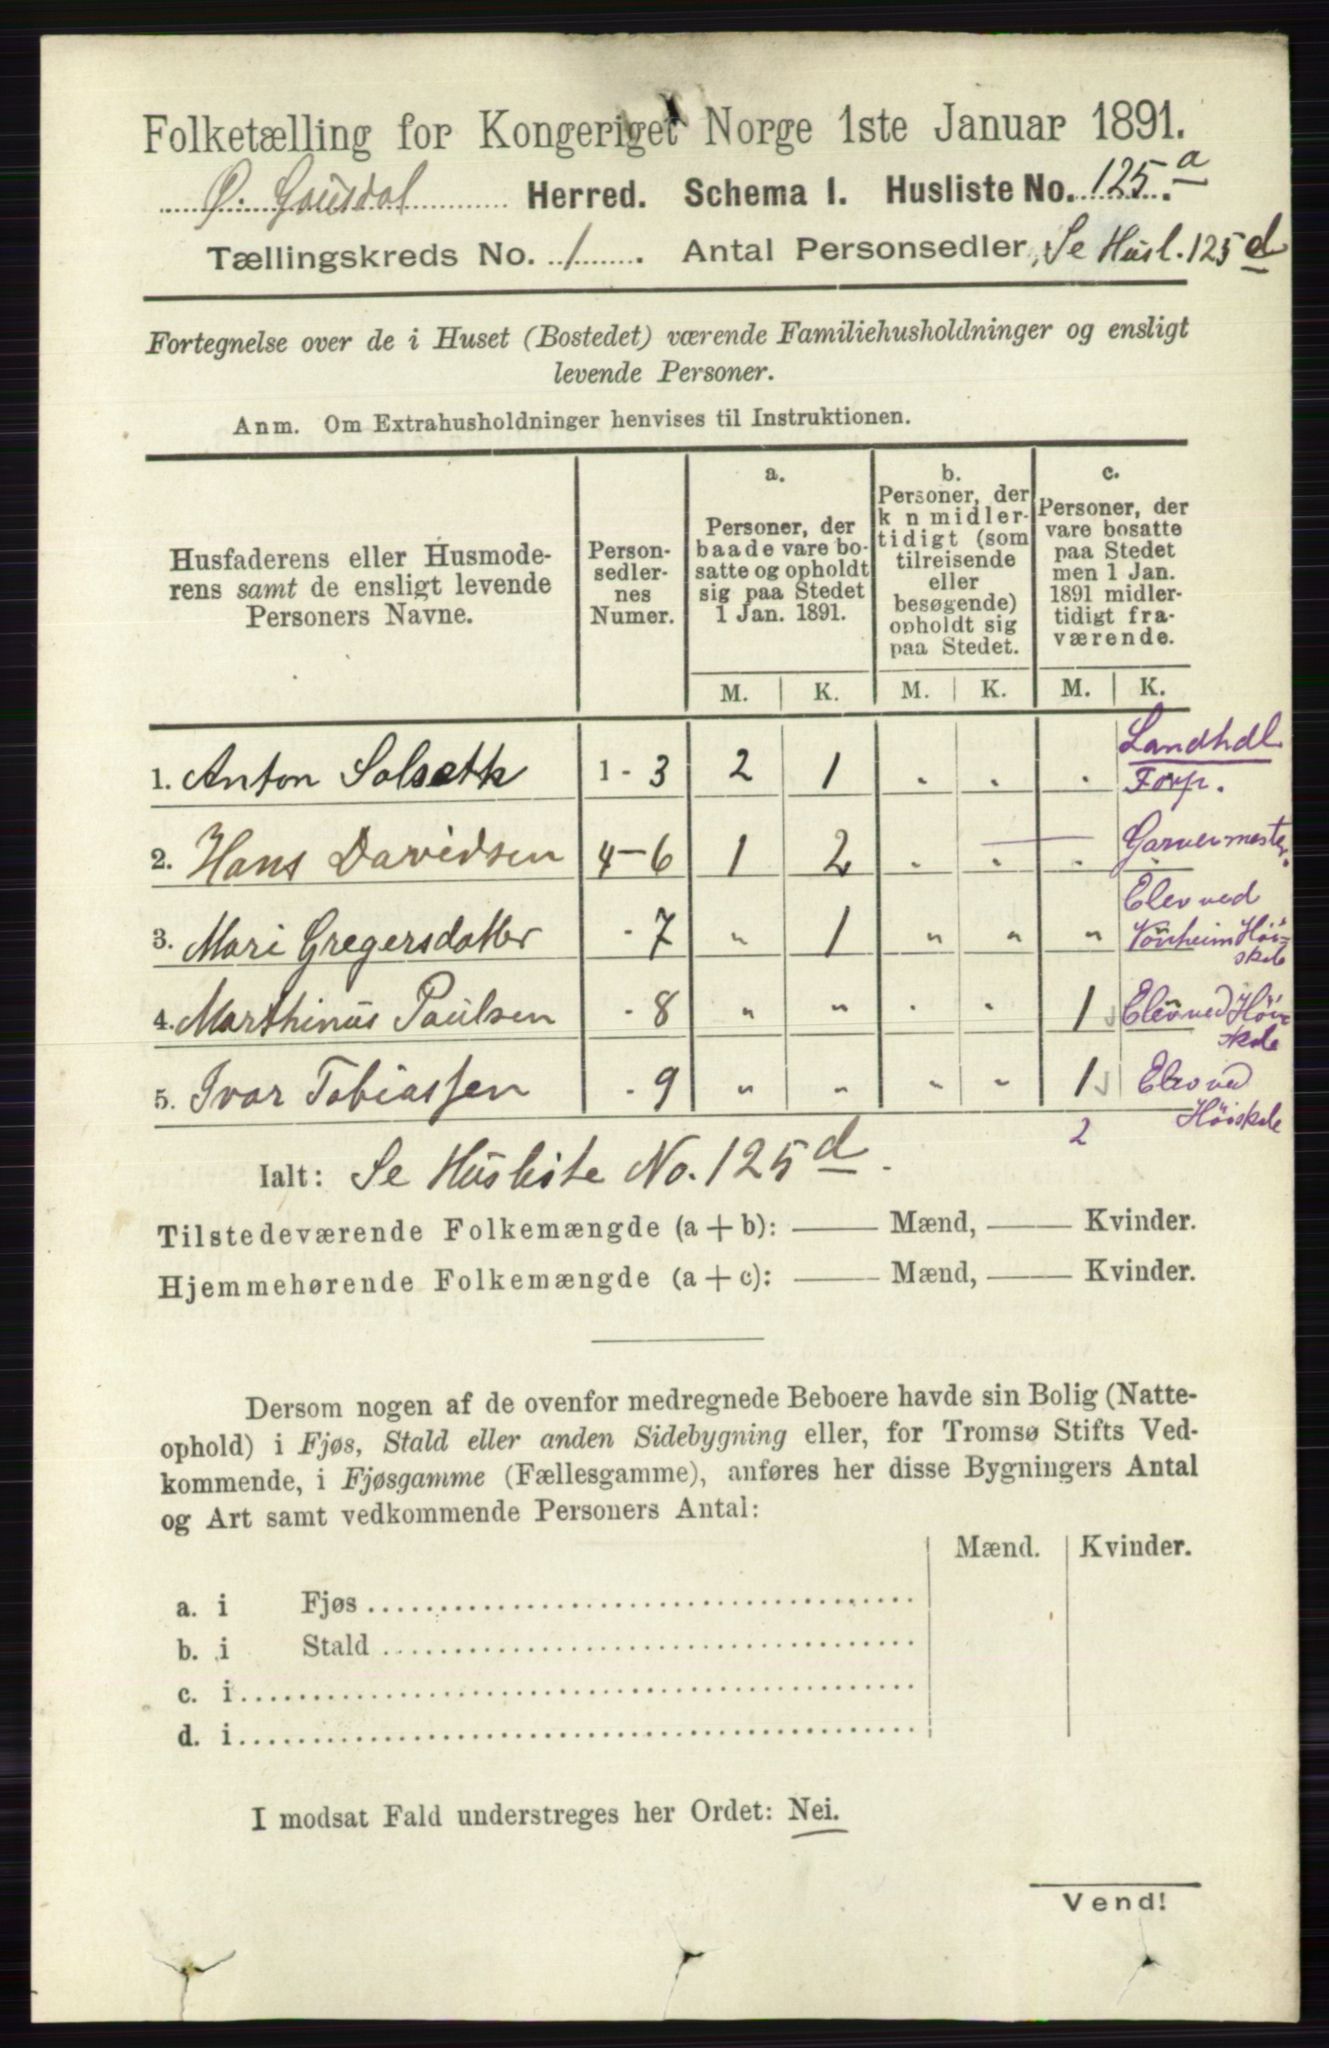 Folketælling for Kongeriget Norge 1ste Januar 1891.
Ø. Gausdal Herred. Schema 1. Husliste No. 125 a.
Tællingskreds No. 1. Antal Personsedler, Se Husl. 125 d
Fortegnelse over de i Huset (Bostedet) værende Familiehusholdninger og ensligt
levende Personer.
Anm. Om Extrahusholdninger henvises til Instruktionen.
Husfaderens eller Husmode-
rens samt de ensligt levende
Personers Navne.
Person-
sedler-
nes
Numer.
a.
Personer, der
baade vare bo-
satte og opholdt
sig paa Stedet
1 Jan. 1891.
b.
Personer, der
k n midler-
tidigt (som
tilreisende
eller
besøgende)
opholdt sig
paa Stedet.
c.
Personer, der
vare bosatte
paa Stedet
men 1 Jan.
1891 midler-
tidigt fra-
værende.
M. K. M. K. M. K.
1. Anton Solseth 1 - 3 2 1 . . . Landhdl Forp.
2. Hans Davidsen 4-6 1 2 . . . Garvermester.
3. Mari Gregersdatter - 7 „ 1 „ „ „ Elev ved Vonheim Höi- skole
4. Marthinus Paulsen - 8 „ „ . . 1 Elev ved Höi- skole
5. Ivar Tobiassen - 9 „ „ „ „ 1 Elev ved Höiskole
2
Ialt: Se Husliste No. 125 d.
Tilstedeværende Folkemængde (a + b): —— Mænd, —— Kvinder.
Hjemmehørende Folkemængde (a + c): —— Mænd, —— Kvinder.
Dersom nogen af de ovenfor medregnede Beboere havde sin Bolig (Natte-
ophold) i Fjøs, Stald eller anden Sidebygning eller, for Tromsø Stifts Ved-
kommende, i Fjøsgamme (Fællesgamme), anføres her disse Bygningers Antal
og Art samt vedkommende Personers Antal:
Mænd. Kvinder.
a. i Fjøs
b. i Stald
c. i
d. i
I modsat Fald understreges her Ordet: Nei.
Vend!